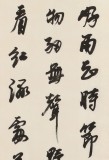 好雨知時節
物細無聲野
看紅濕處